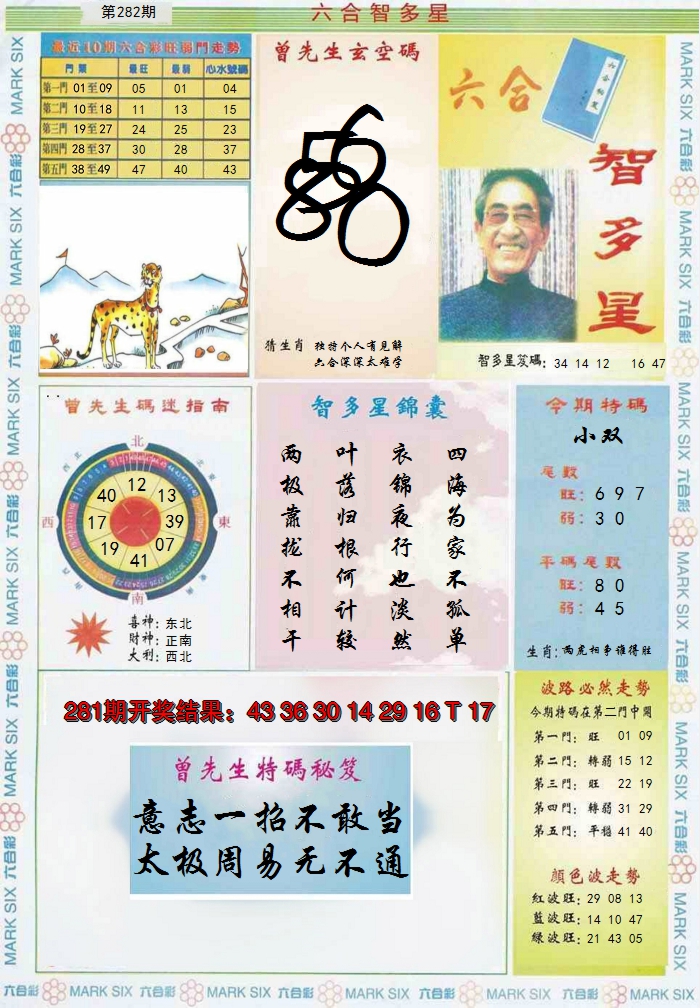 第282期
六合智多星
最近10期六合彩旺弱門走勢
門類 最旺 最弱 心水號碼
第一門 01至09 05 01 04
第二門 10至18 11 13 15
第三門 19至27 24 25 23
第四門 28至37 30 28 37
第五門 38至49 47 40 43
曾先生玄空碼
猜生肖 独特个人有見解
六合深深太难学
六合
智多星
智多星笈碼: 34 14 12 16 47
曾先生碼迷指南
北
西
東
南
12
13
39
07
41
19
17
40
喜神: 东北
財神: 正南
大利: 西北
智多星錦囊
四海为家不孤单
衣錦夜行也淡然
叶落归根何计较
两极靠拢不相干
今期特碼
小双
尾數
旺: 6 9 7
弱: 3 0
平碼尾數
旺: 8 0
弱: 4 5
生肖: 两虎相争谁得胜
281期开奖结果: 43 36 30 14 29 16 T 17
曾先生特碼秘笈
意志一招不敢当
太极周易无不通
波路必然走勢
今期特碼在第二門中開
第一門: 旺 01 09
第二門: 轉弱 15 12
第三門: 旺 22 19
第四門: 轉弱 31 29
第五門: 平穩 41 40
顏色波走勢
紅波旺: 29 08 13
藍波旺: 14 10 47
綠波旺: 21 43 05
六合彩 MARK SIX 六合彩 MARK SIX 六合彩 MARK SIX 六合彩 MARK SIX 六合彩 MARK SIX